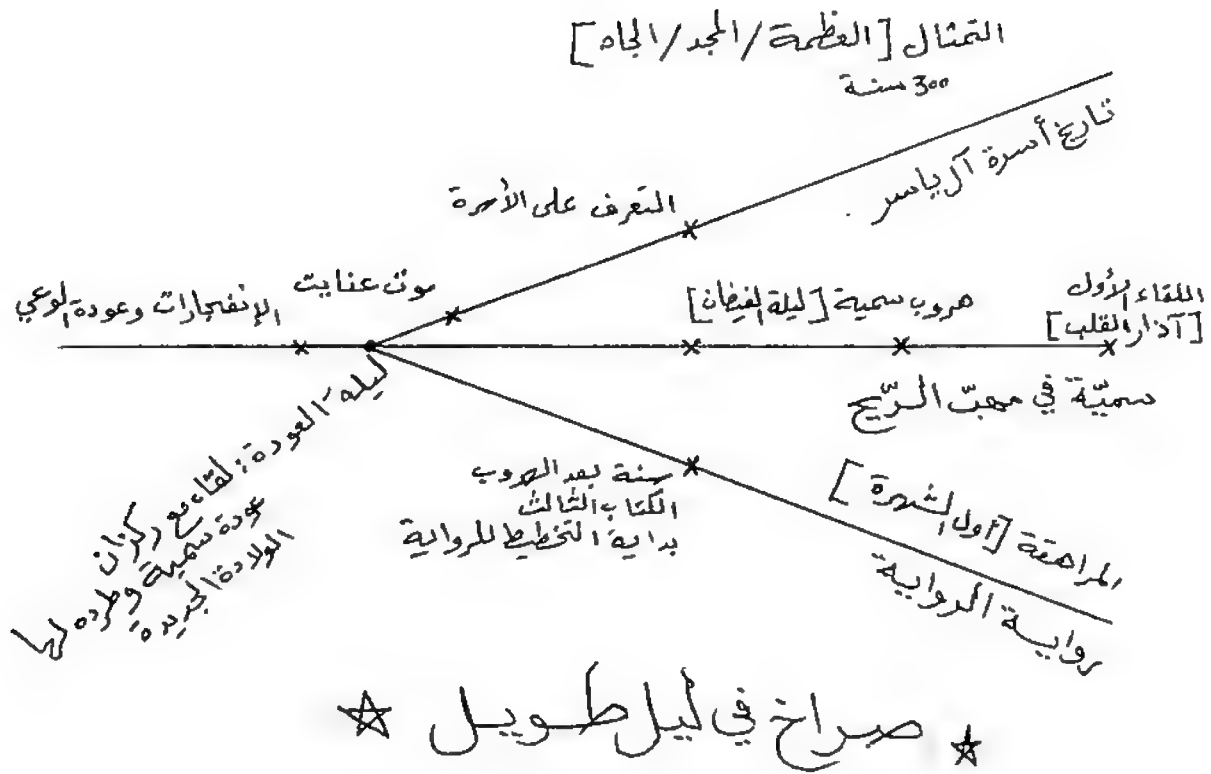 التمثال [العظمة/المجد/الجاه]
300 سنة
تاريخ أسرة آل ياسر
التعرف على الأسرة
موت عنايت
الإنفجارات وعودة الوعي
هروب سمية [ليلة الفيضان]
اللقاء الأول
[آذار القلب]
سميّة في مهبّ الريّح
ليلة العودة: لقاء مع ركزان
عودة سمية وطرده لها
الولادة الجديدة
سنة بعد الهروب
الكتاب الثالث
بداية التخطيط للرواية
المراهقة [أول الشهرة]
رواية الرواية
صراخ في ليل طويل